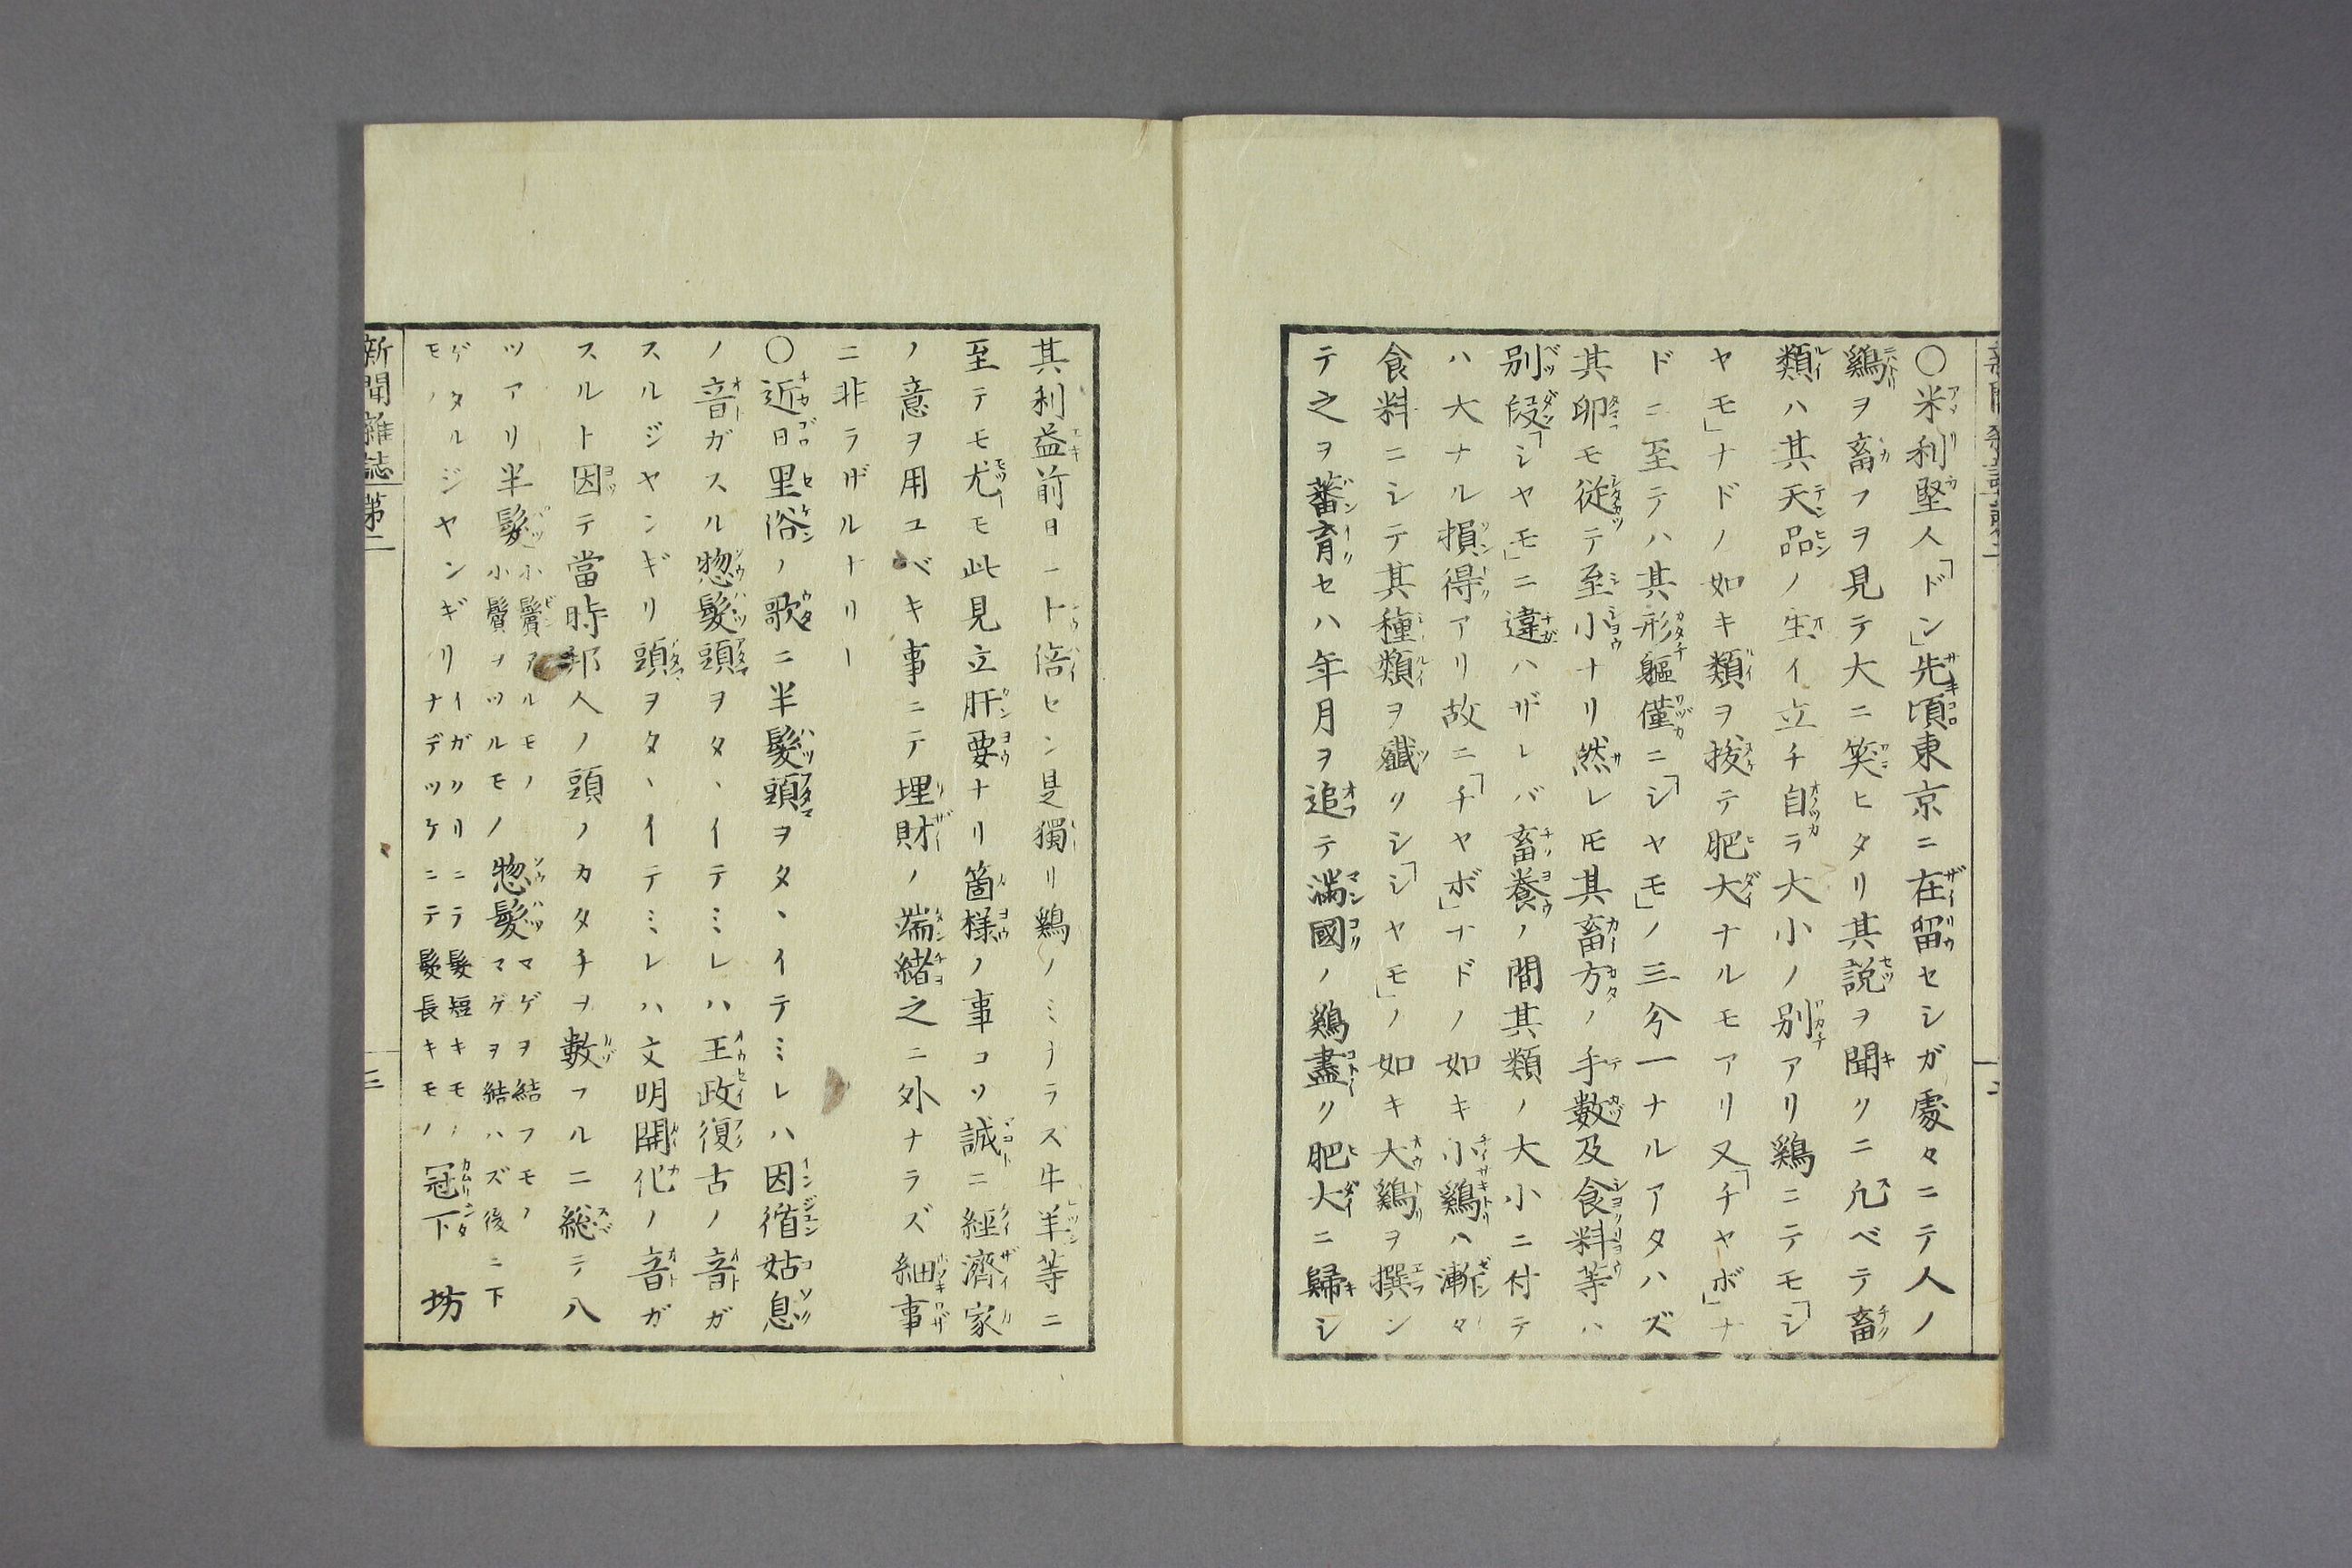 ○米利堅人「ドン」先頃東京ニ在留セシガ處々ニテ人ノ
鷄ヲ畜フヲ見テ大ニ笑ヒタリ其説ヲ聞クニ凡ベテ畜
類ハ其天品ノ生イ立チ自ラ大小ノ別アリ鷄ニテモ「シ
ヤモ」ナドノ如キ類ヲ抜テ肥大ナルモアリ又「チヤボ」ナ
ドニ至テハ其形軀僅ニ「シヤモ」ノ三分一ナルアタハズ
其卵モ従テ至小ナリ然レ𪜈其畜方ノ手數及食料等ハ
別段「シヤモ」ニ違ハザレバ畜養ノ間其類ノ大小ニ付テ
ハ大ナル損得アリ故ニ「チヤボ」ナドノ如キ小鷄ハ漸々
食料ニシテ其種類ヲ殱クシ「シヤモ」ノ如キ大鷄ヲ撰ン
テ之ヲ蕃育セハ年月ヲ追テ滿國ノ鷄盡ク肥大ニ歸シ
其利益前日一ト倍セン是獨リ鷄ノミナラス牛羊等ニ
至テモ尤モ此見立肝要ナリ箇様ノ事コソ誠ニ經濟家
ノ意ヲ用ユベキ事ニテ埋財ノ端緒之ニ外ナラズ細事
ニ非ラザルトリー
○近日里俗ノ歌ニ半髮頭ヲタヽイテミレハ因循姑息
ノ音ガスル惣髮頭ヲタヽイテミレハ王政復古ノ音ガ
スルジヤンギリ頭ヲタヽイテミレハ文明開化ノ音ガ
スルト因テ當時邦人ノ頭ノカタチヲ數フルニ総テ八
ツアリ半髮小鬢アルモノ小鬢ヲソルモノ惣髮マゲヲ結フモノマゲヲ結ハズ後ニ下
ゲタルジヤンギリイガクリニラ髮短キモノモノナデツケニテ髮長キモノ冠下 坊
新聞雜誌 第二
三